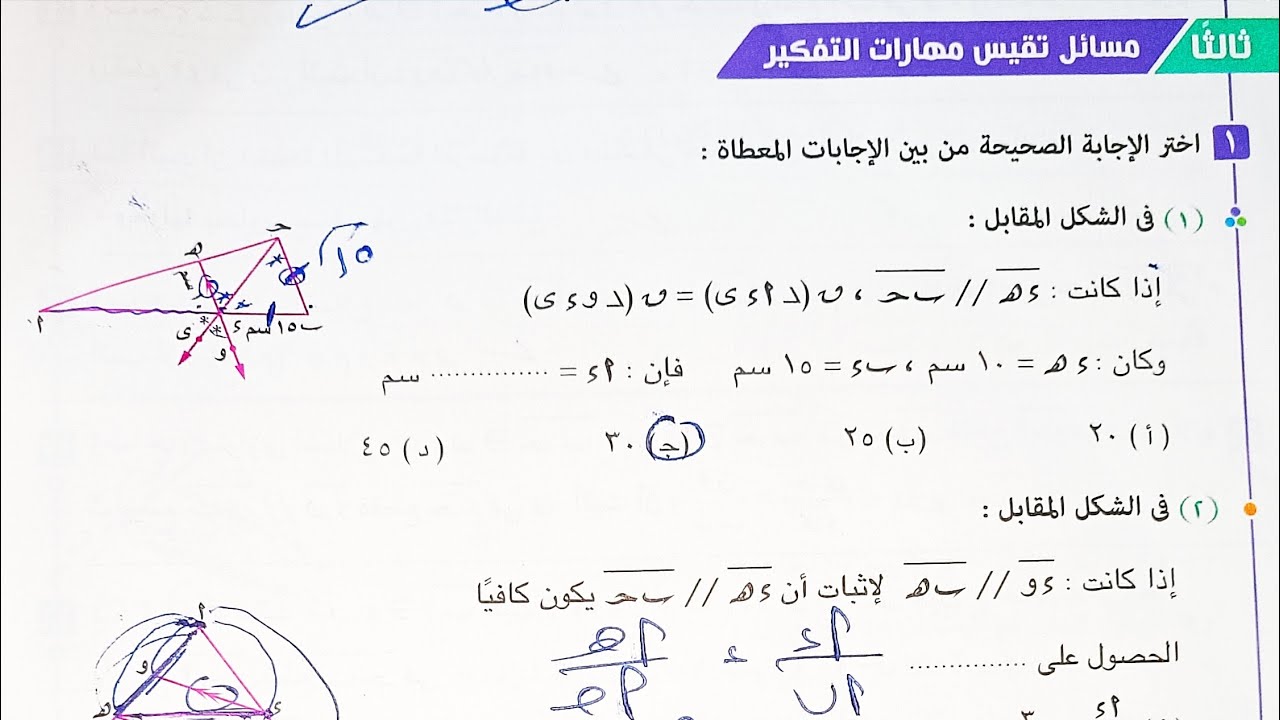 ثالثًا مسائل تقيس مهارات التفكير
١ اختر الإجابة الصحيحة من بين الإجابات المعطاة :
(١) فى الشكل المقابل :
إذا كانت : ءهـ // بحـ ، ق (د أ ء ى) = ق (د و ء ى)
وكان : ءهـ = ١٠ سم ، بء = ١٥ سم فإن : أء = ............... سم
(أ) ٢٠ (ب) ٢٥ (جـ) ٣٠ (د) ٤٥
حـ
هـ
١٥
١٠ سم
أ
ى
ء
١٥ سم
ب
و
(٢) فى الشكل المقابل :
إذا كانت : ءو // بهـ لإثبات أن ءهـ // بحـ يكون كافيًا
الحصول على ...............
أ
و
هـ
ء
أء
أب
=
أهـ
أء
٣